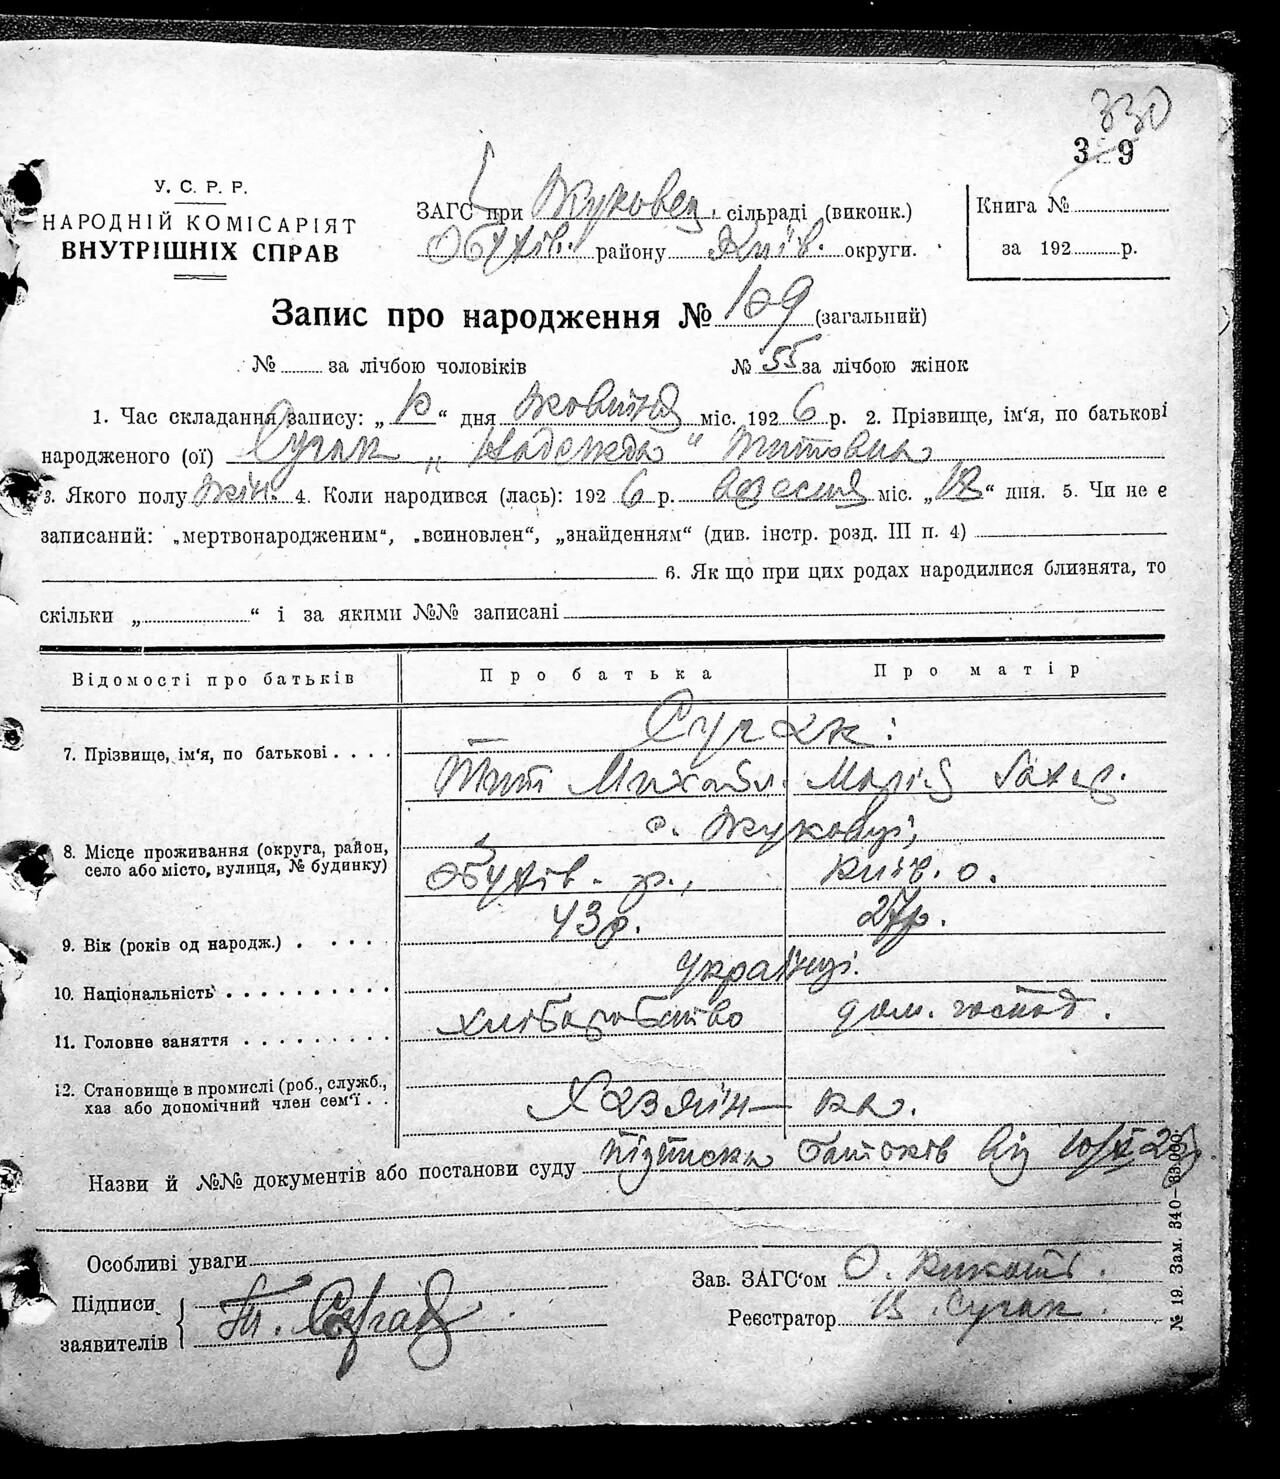 330
3 9
У. С. Р. Р.
НАРОДНІЙ КОМІСАРІЯТ
ВНУТРІШНІХ СПРАВ
ЗАГС при Жуковец. сільраді (виконк.)
Обухів. району Київ. округи.
Книга №
за 192 р.
Запис про народження № 109 (загальний)
№ за лічбою чоловіків № 55 за лічбою жінок
1. Час складання запису: „10“ дня жовтня міс. 1926 р. 2. Прізвище, ім'я, по батькові
народженого (ої) Сугак „Надежда“ Титовна
3. Якого полу жін. 4. Коли народився (лась): 1926 р. вересня міс. „ “ дня. 5. Чи не є
записаний: „мертвонародженим“, „всиновлен“, „знайденням“ (див. інстр. розд. III п. 4)
6. Як що при цих родах народилися близнята, то
скільки „ “ і за якими №№ записані
Відомості про батьків Про батька Про матір
Сугак:
7. Прізвище, ім'я, по батькові Тит Михайл. Марія
с. Жуковці,
8. Місце проживання (округа, район, село або місто, вулиця, № будинку) Обухів. р., Київ. о.
9. Вік (років од народж.) 43 р. 27 р.
10. Національність українці.
11. Головне заняття хліборобство дом. господ.
12. Становище в промислі (роб., служб., хаз або допомічний член сем'ї Хазяїн — ка.
Назви й №№ документів або постанови суду підписка батьків від 10/X 26 р.
Особливі уваги
Підписи заявителів Т. Сугак
Зав. ЗАГС'ом О.
Реєстратор Сугак.
№ 19. Зам. 340—33.000.